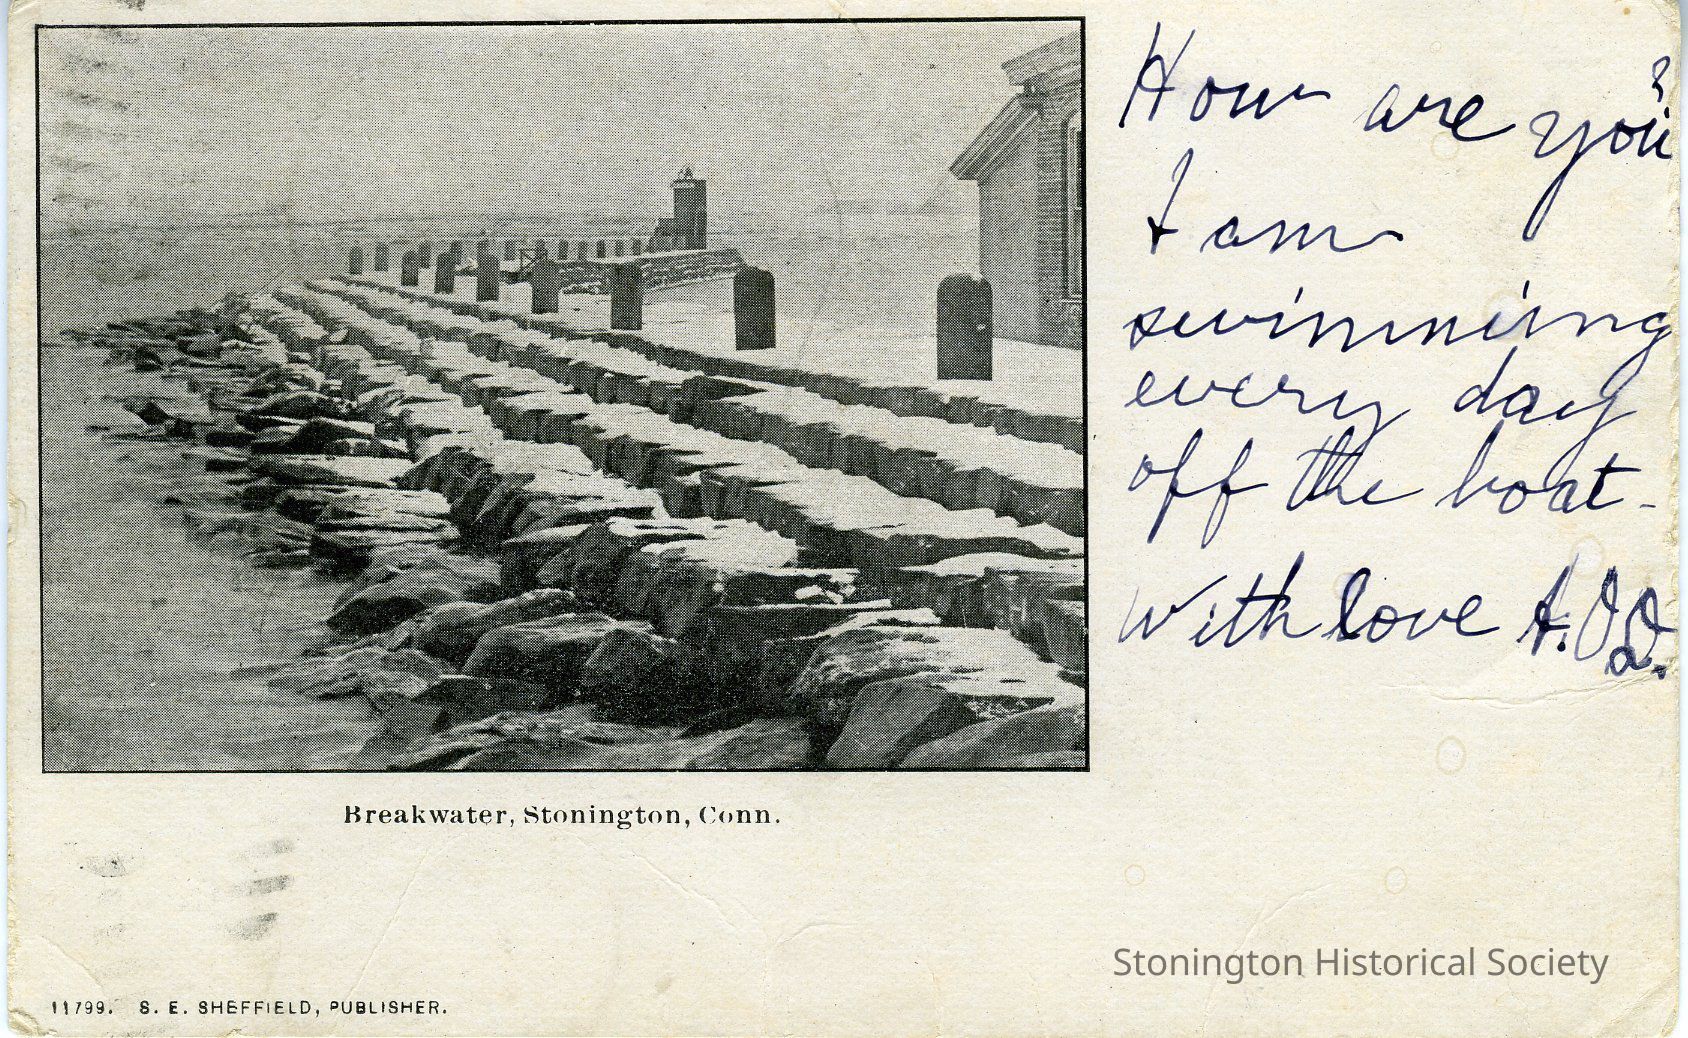 How are you?
I am
swimming
every day
off the boat-
With love A.
Breakwater, Stonington, Conn.
11799. S. E. SHEFFIELD, PUBLISHER.
Stonington Historical Society